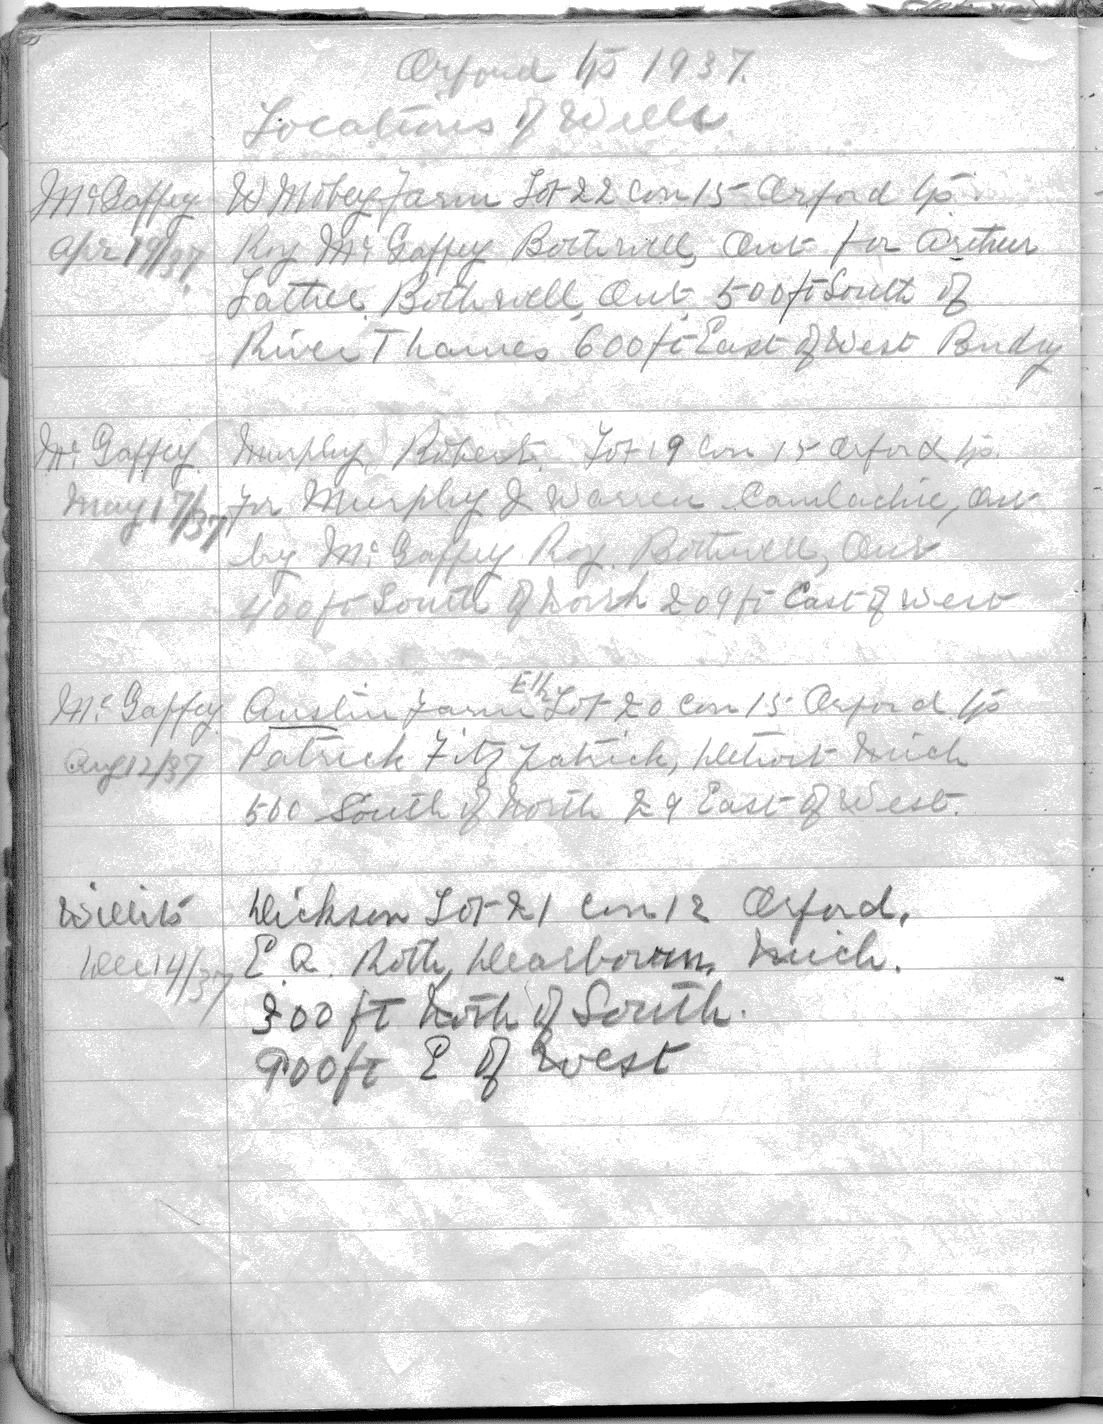 Orford Tp 1937.
Locations of Wells
McGaffey W Mobey Farm Lot 22 Con 15 Orford Tp.
Apr 19/37. Roy McGaffey Bothwell, Ont for Arthur
Bothwell, Ont, 500ft South of
River Thames 600ft East of West Bndry
McGaffey Murphy, Robert. Lot 19 Con 15 Orford Tp.
May 17/37 For Murphy & Warren Camlachie, Ont
by McGaffey Roy. Bothwell, Ont
400ft South of North 209ft East of West
McGaffey Austin Farm E½ Lot 20 Con 15 Orford Tp
Aug 12/37 Patrick Fitzpatrick, Detroit Mich
500 South of North 29 East of West.
Willits Dickson Lot 21 Con 12 Orford.
Dec 14/37 E. A. Roth, Dearborn, Mich.
300ft North of South.
900ft E of West